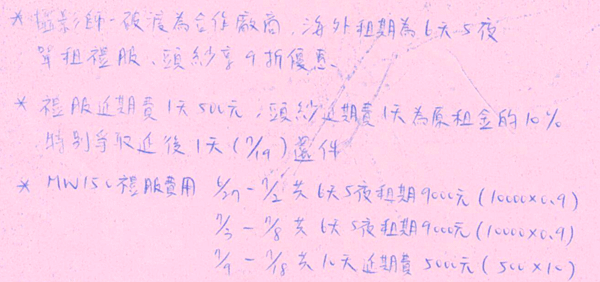 *攝影師-破渡為合作廠商,海外租期為6天5夜
單租禮服、頭紗享9折優惠
*禮服延期費1天500元,頭紗延期費1天為原租金的10%
特別爭取延後1天(7/19)還件
*MW150禮服費用 6/27-7/2共6天5夜租期9000元(10000×0.9)
7/3-7/8共6天5夜租期9000元(10000×0.9)
7/9-7/18共10天延期費5000元(500×10)